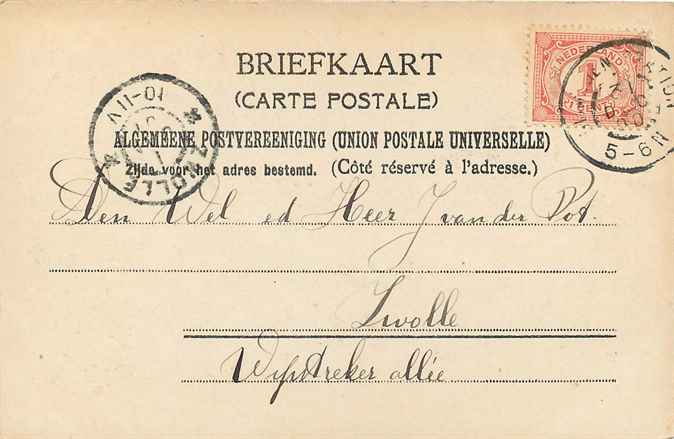 BRIEFKAART
(CARTE POSTALE)
ALGEMEENE POSTVEREENIGING (UNION POSTALE UNIVERSELLE)
Zijde voor het adres bestemd. (Côté réservé à l'adresse.)
NEDERLAND
1
ZWOLLE
10-11V
5-6N
Den Wel ed Heer J van der Pot.
Zwolle
Wipstreker allée